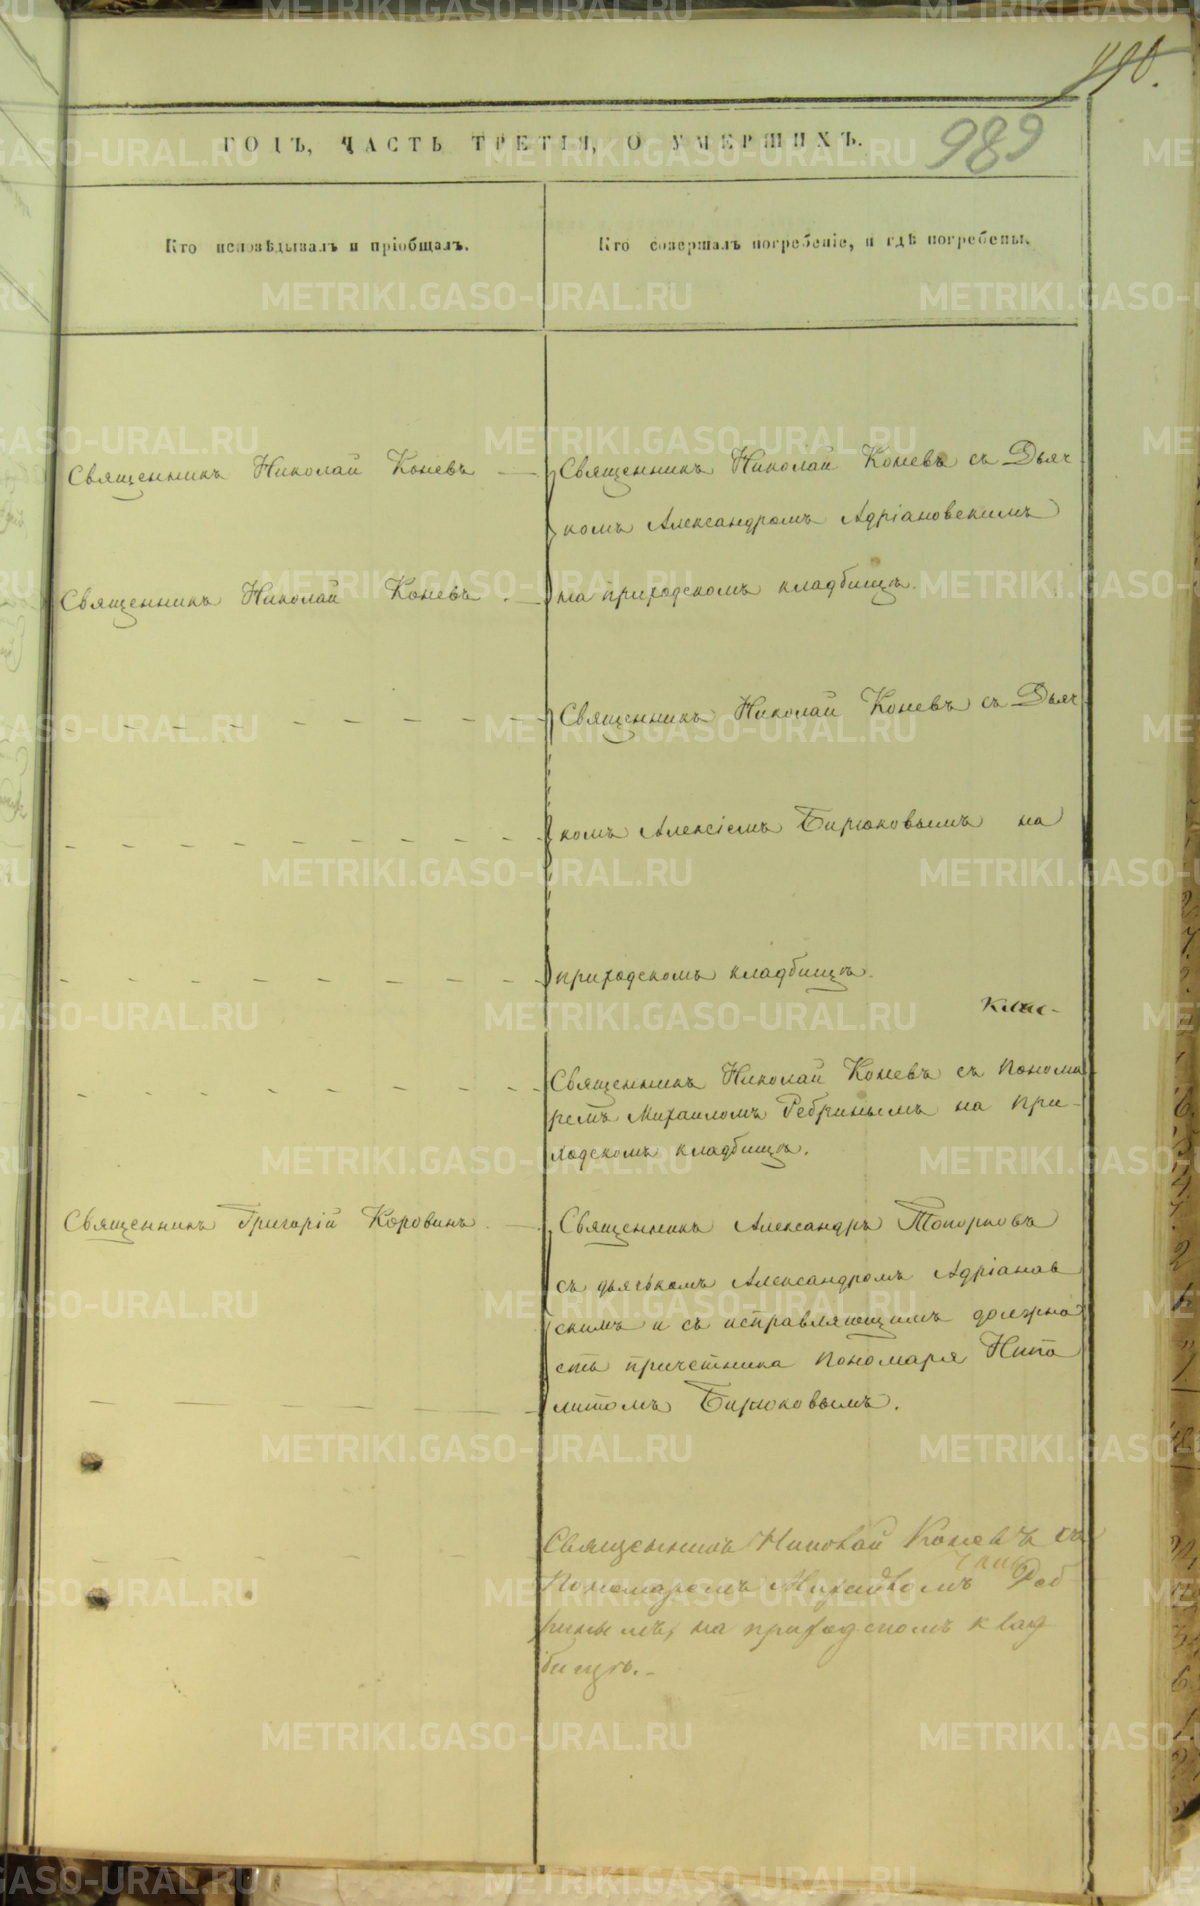 989
ГОДЪ, ЧАСТЬ ТРЕТІЯ, О УМЕРШИХЪ.
Кто исповѣдывалъ и пріобщалъ.
Кто совершалъ погребеніе, и гдѣ погребены.
Священникъ Николай Коневъ
Священникъ Николай Коневъ съ Дьяч
комъ Александромъ Адріановскимъ
Священникъ Николай Коневъ
на приходскомъ кладбищѣ.
Священникъ Николай Коневъ съ Дьяч
комъ Алексіемъ Бирюковымъ на
приходскомъ кладбищѣ.
Священникъ Николай Коневъ съ Понома
ремъ Михаиломъ Ребринымъ на при-
ходскомъ кладбищѣ.
Священникъ Григорій Коровинъ
Священникъ Александръ Топорковъ
съ дьячькомъ Александромъ Адріанов
скимъ и съ исправляющимъ должно
сть причетника пономаря Ипо
литомъ Бирюковымъ.
Священникъ Николай Коневъ съ
Пономаремъ Михайломъ Реб
ринымъ, на приходскомъ клад
бищѣ.-
METRIKI.GASO-URAL.RU